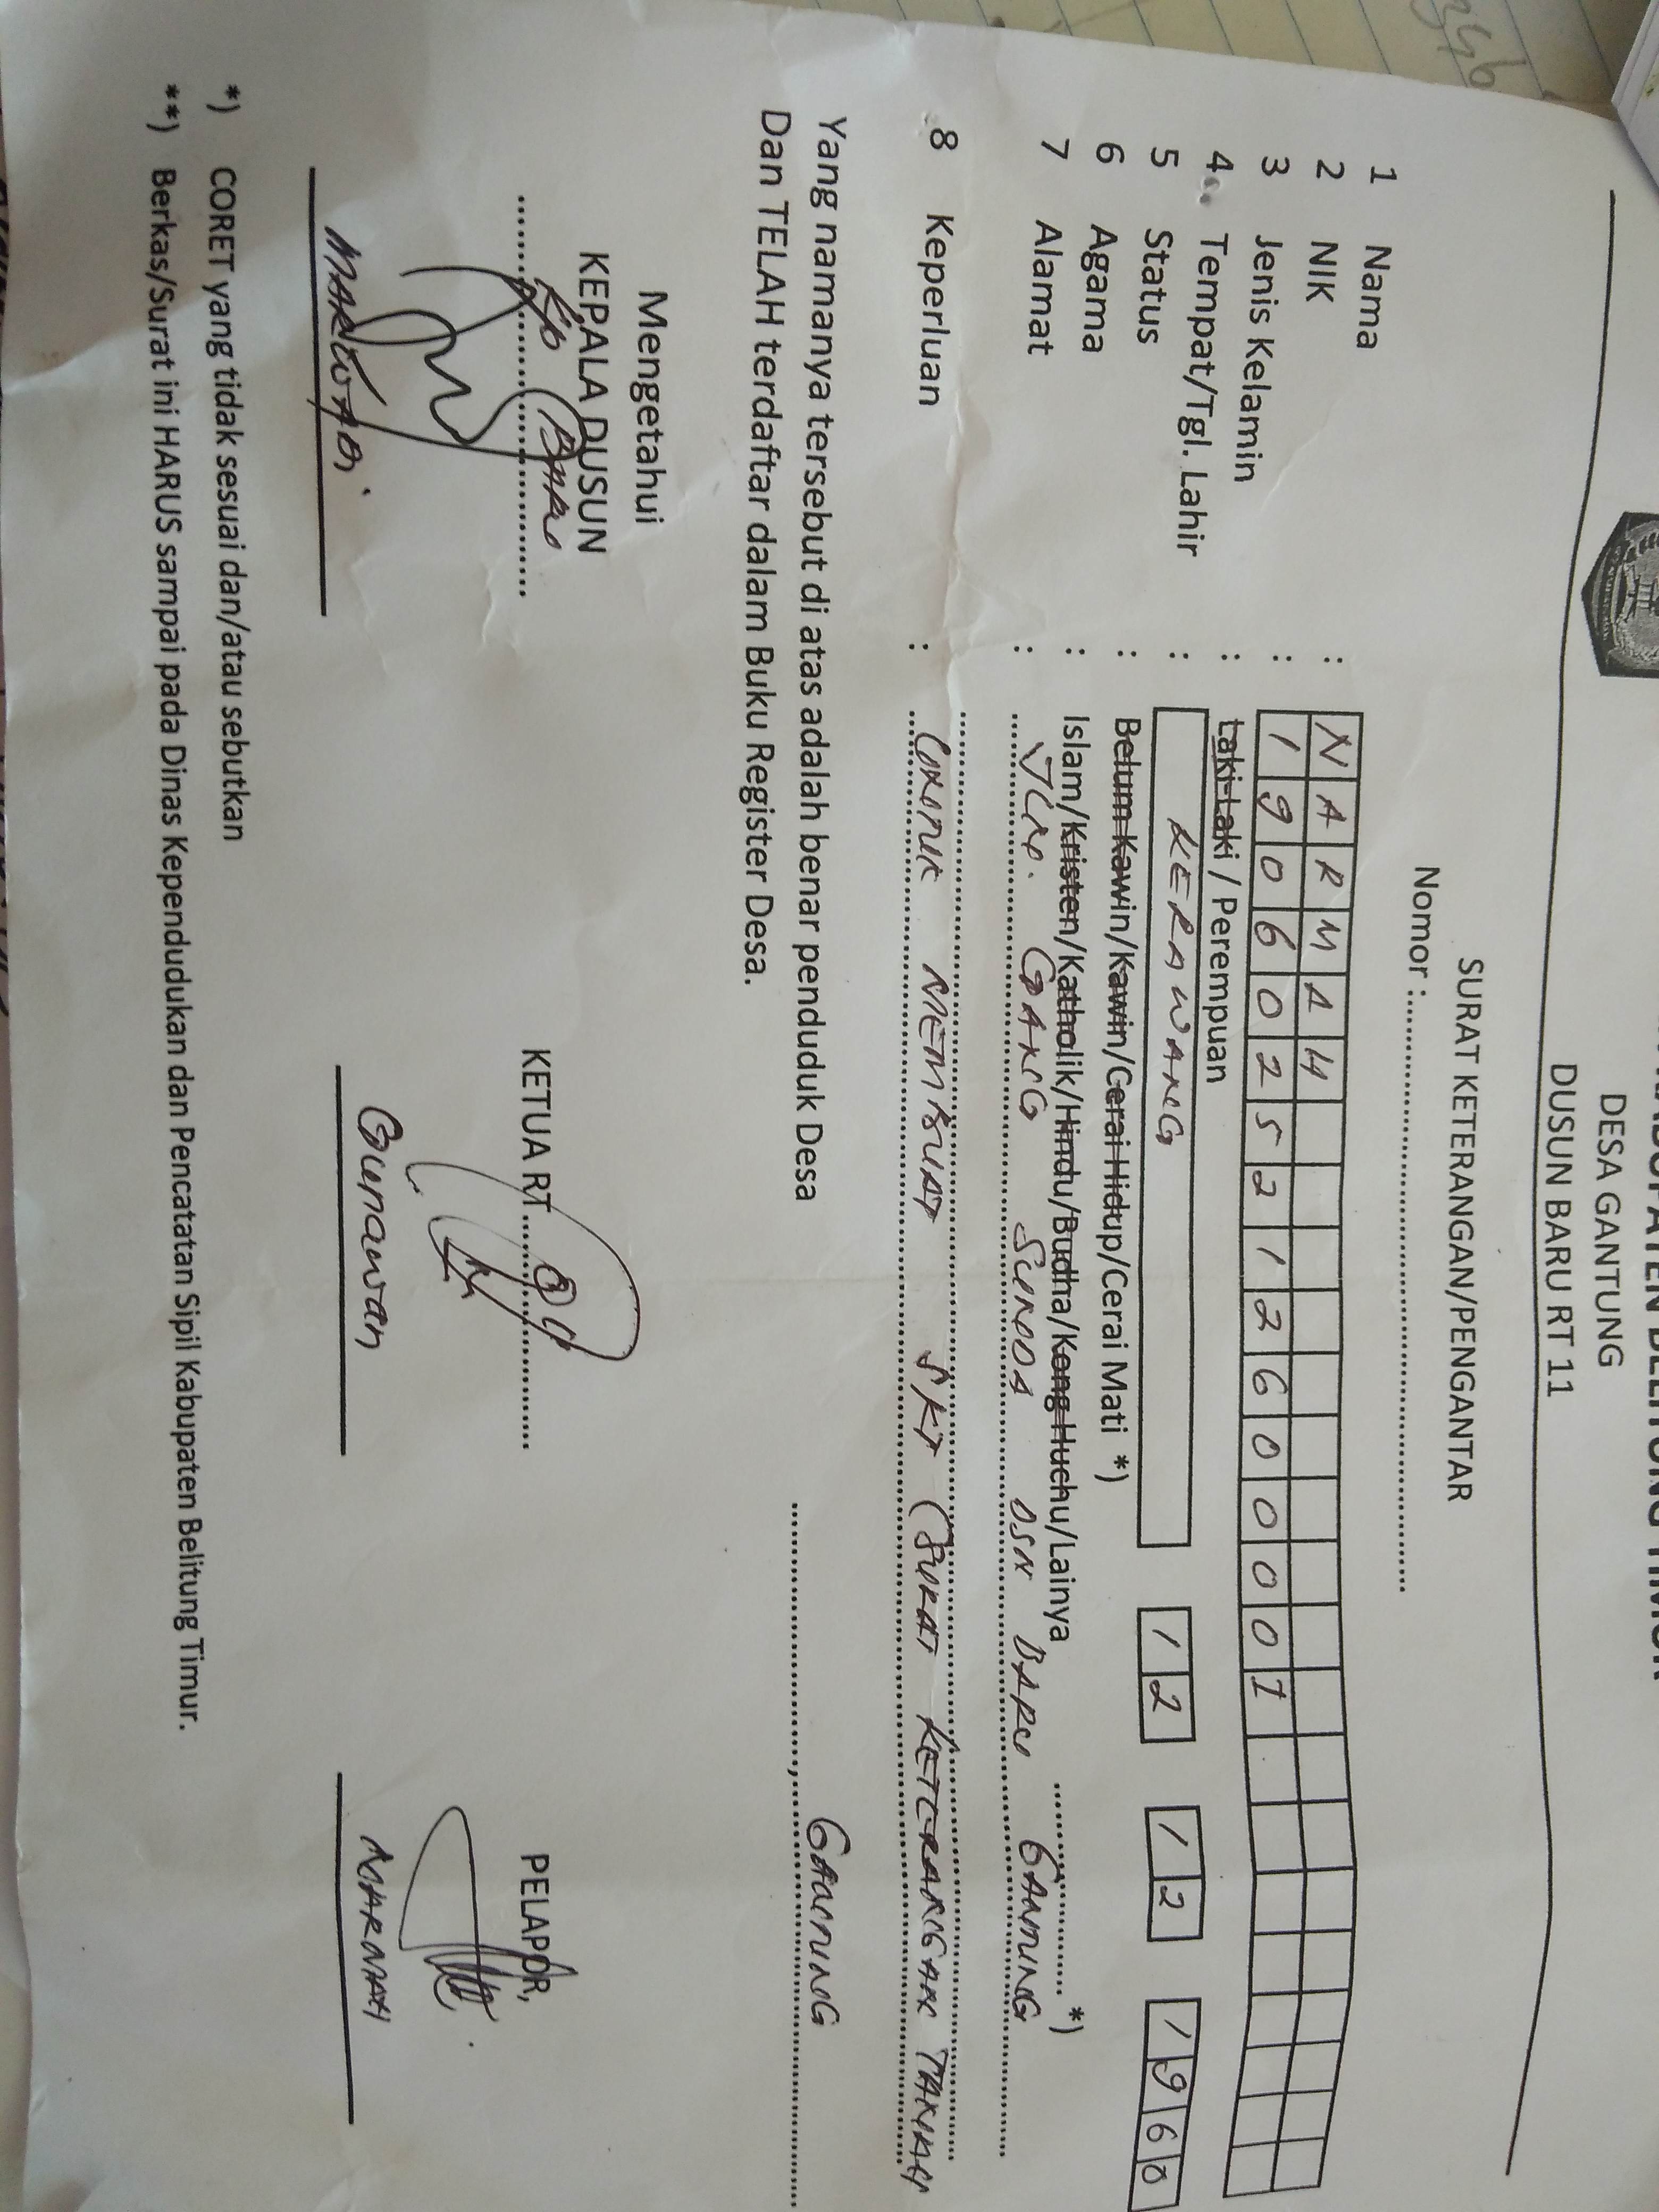 KABUPATEN BELITUNG TIMUR
DESA GANTUNG
DUSUN BARU RT 11
SURAT KETERANGAN/PENGANTAR
Nomor :..........................................................
1 Nama : NARMAH
2 NIK : 1906025212600001
3 Jenis Kelamin : Laki-Laki / Perempuan
4 Tempat/Tgl. Lahir : KERAWANG 12 12 1960
5 Status : Belum Kawin/Kawin/Cerai Hidup/Cerai Mati *)
6 Agama : Islam/Kristen/Katholik/Hindu/Budha/Kong Huchu/Lainya .................... *)
7 Alamat : JLN. GANG SUNDA DSN BARU GANTUNG
8 Keperluan : UNTUK MEMBUAT SKT (SURAT KETERANGAN TANAH
Yang namanya tersebut di atas adalah benar penduduk Desa
Dan TELAH terdaftar dalam Buku Register Desa.
GANTUNG
Mengetahui
KEPALA DUSUN
KETUA RT
PELAPOR,
Gunawan
NARMAH
*) CORET yang tidak sesuai dan/atau sebutkan
**) Berkas/Surat ini HARUS sampai pada Dinas Kependudukan dan Pencatatan Sipil Kabupaten Belitung Timur.